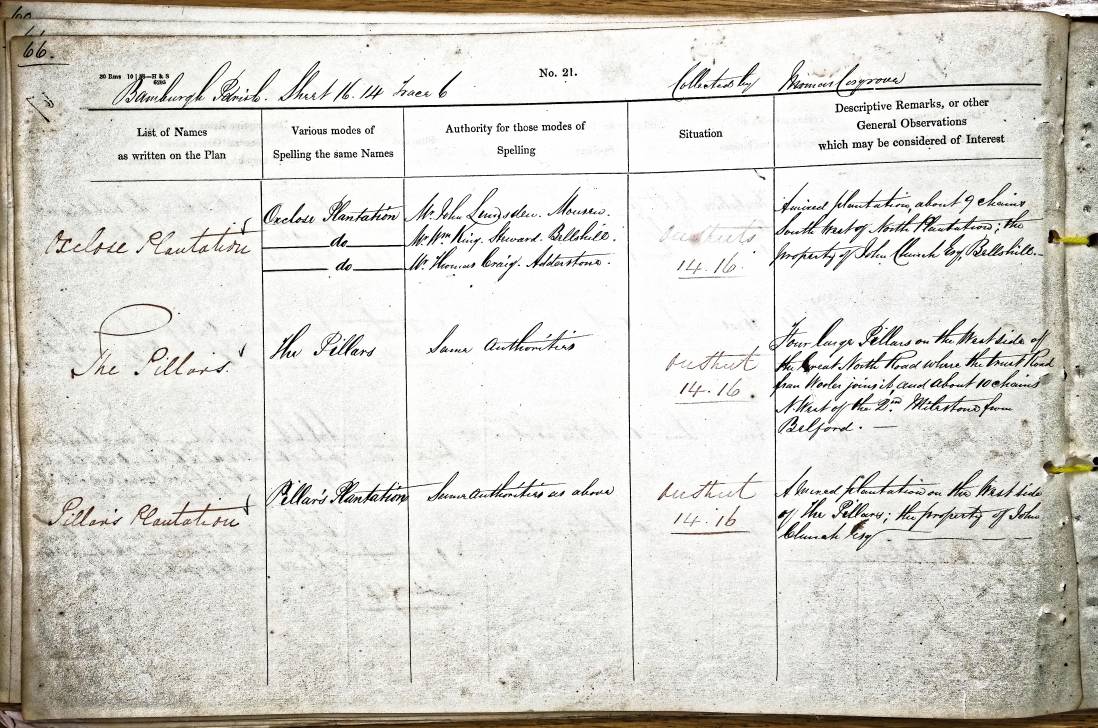 66.
20 Rms 10 | 58—H & S
6295
No. 21.
Bamburgh Parish. Sheet 16.14 Trace 6
Collected by Thomas Cosgrove
List of Names
as written on the Plan
Various modes of
Spelling the same Names
Authority for those modes of
Spelling
Situation
Descriptive Remarks, or other
General Observations
which may be considered of Interest
Oxclose Plantation
Oxclose Plantation
do
do
Mr. John Mousen.
Mr. Wm. King. Steward. Bellshill.
Mr. Thomas Craig. Adderstone.
On Sheets
14.16.
A mixed plantation, about 9 chains
South West of North Plantation; the
property of John Church Esq. Bellshill.
The Pillars.
The Pillars
Same Authorities
On Sheet
14.16
Four large Pillars on the West side of
the Great North Road where the trust Road
from Wooler joins it, and about 10 chains
N. West of the 2nd Milestone from
Belford. —
Pillars Plantation
Pillar's Plantation
Same Authorities as above
On Sheet
14.16
A mixed plantation on the West side
of The Pillars; the property of John
Church Esq